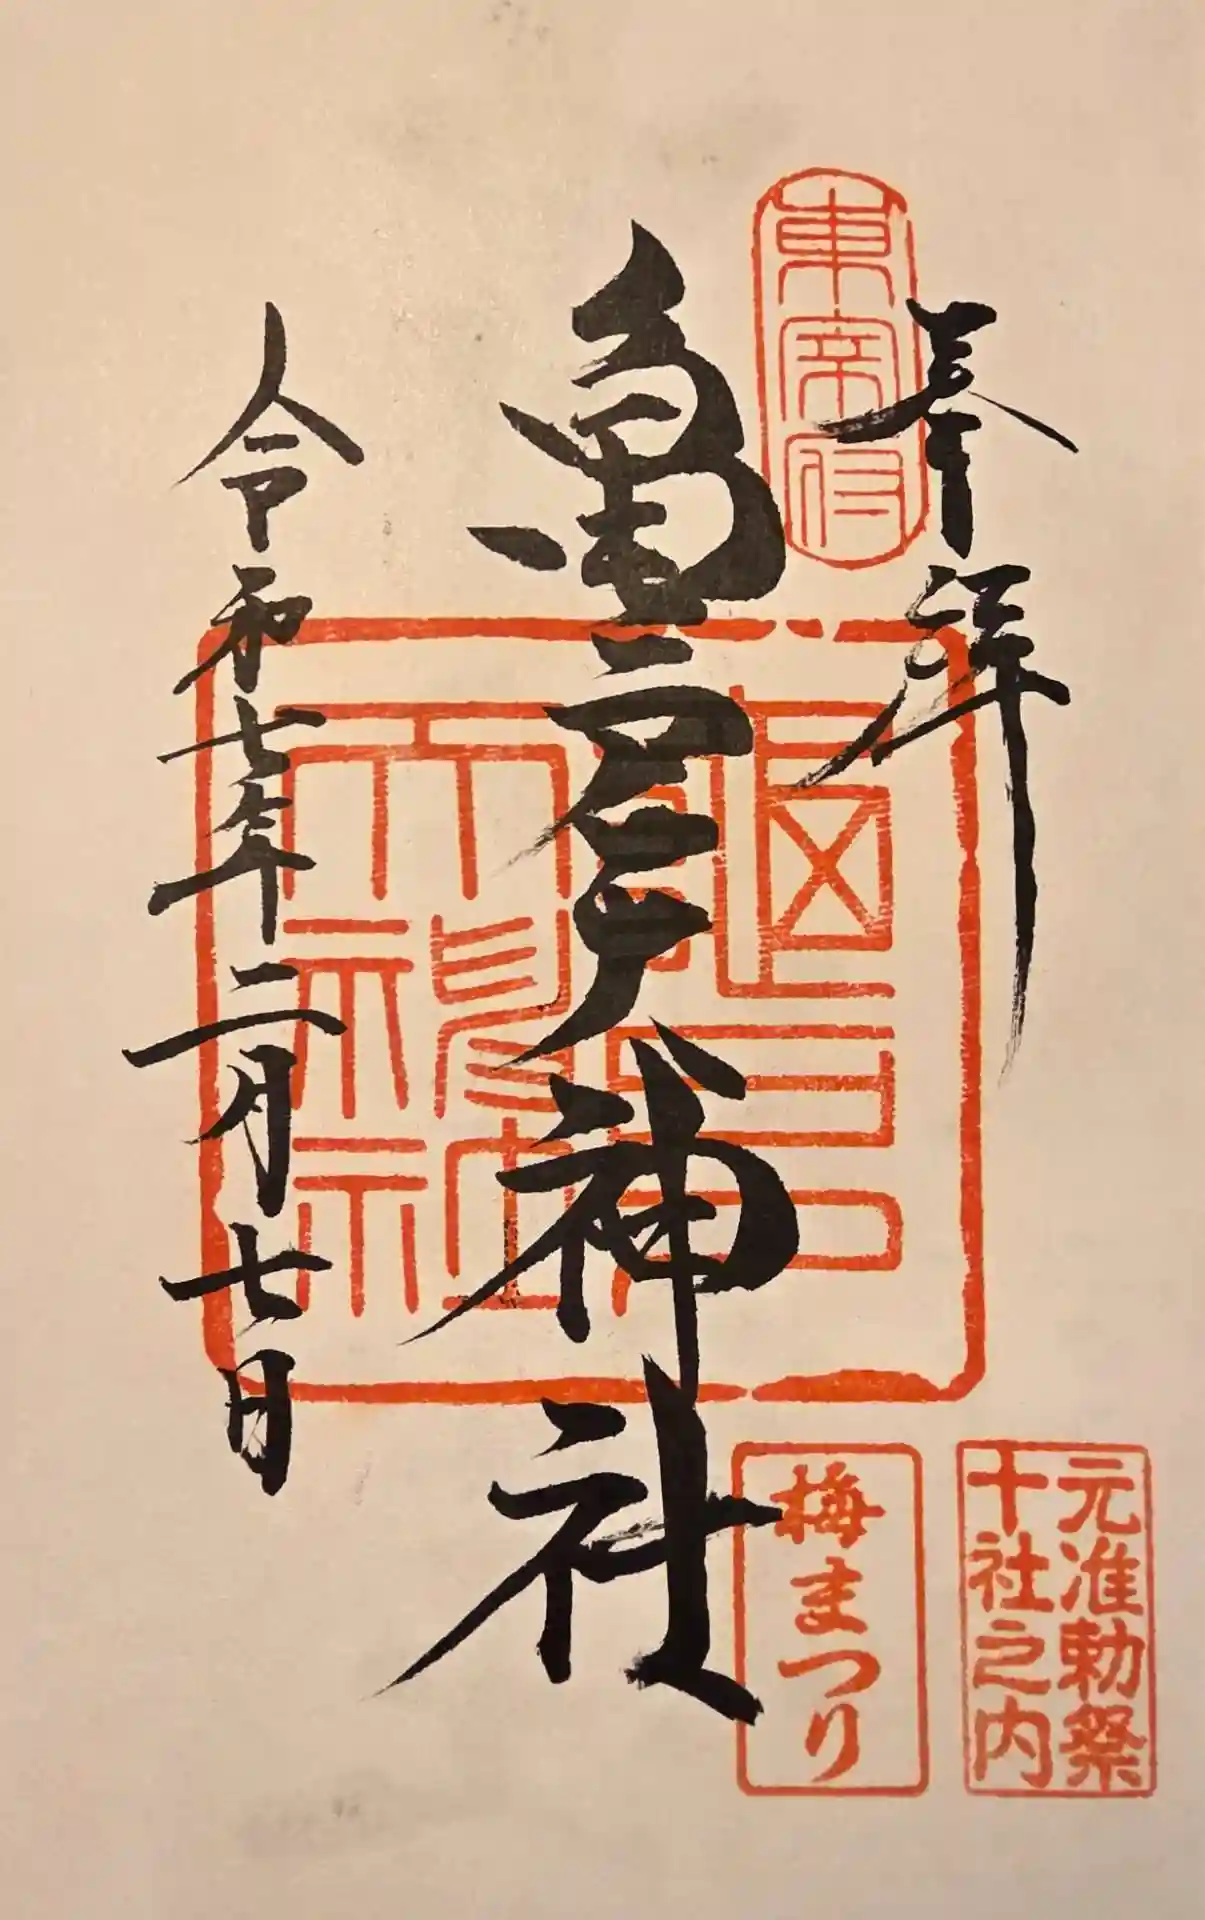 奉拝
東宰府
亀戸天神社
令和七年二月七日
梅まつり
元准勅祭
十社之内